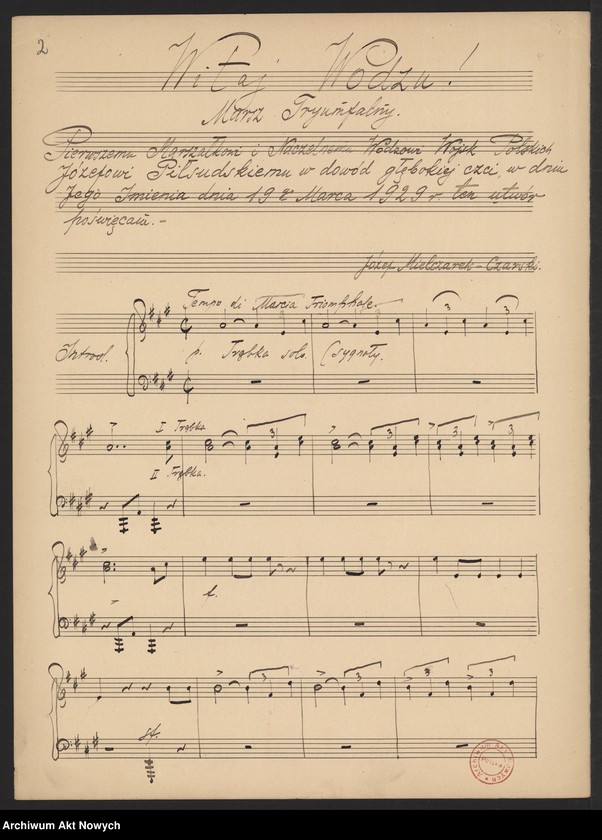 2
Witaj Wodzu!
Marsz Tryumfalny.
Pierwszemu Marszałkowi i Naczelnemu Wodzowi Wojsk Polskich
Józefowi Piłsudskiemu w dowód głębokiej czci, w dniu
Jego Imienia dnia 19 Marca 1929 r. ten utwór
poświęcam.-
Józef Mielczarek-Czarski.
Tempo di Marcia Triomphale.
Introd.
p. Trąbka solo. (sygnały.
I Trąbka
II Trąbka.
f.
sf.
3
3
3
3
3
3
3
3
3
3
ARCHIWUM AKT NOWYCH
Archiwum Akt Nowych